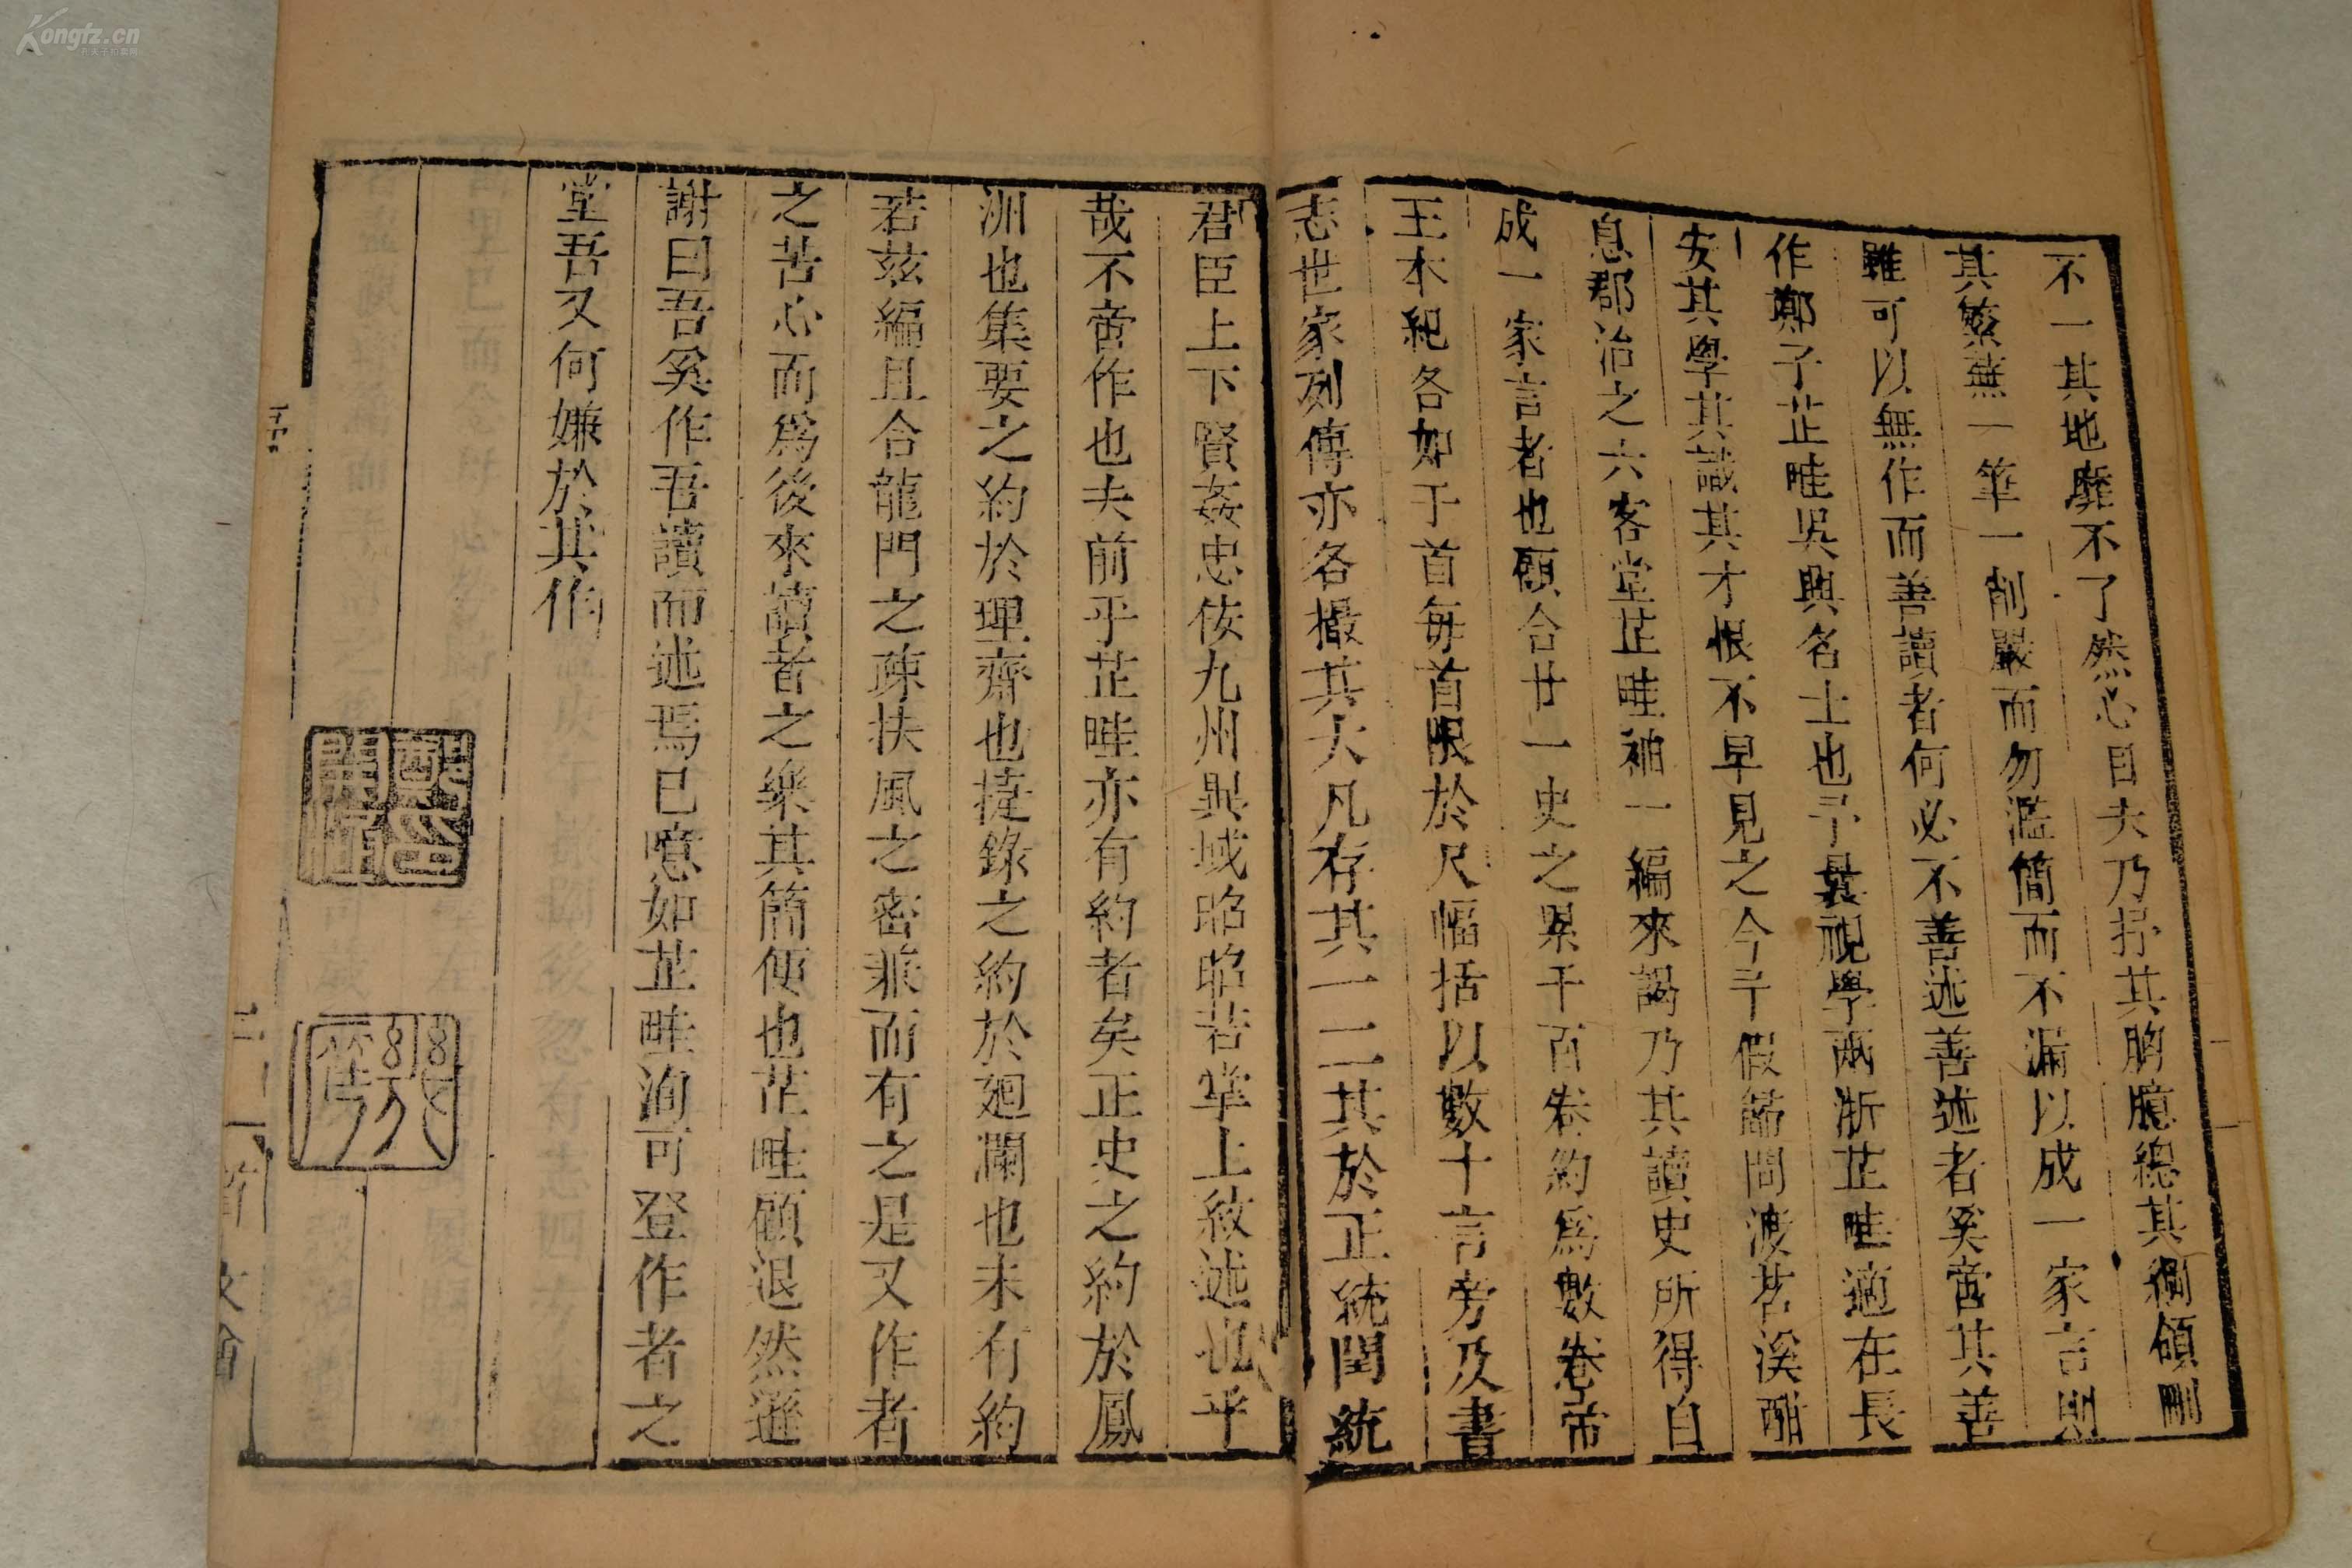 不一其地靡不了然心目夫乃抒其胸臆總其綱領刪
其繁蕪一筆一削嚴而勿濫簡而不漏以成一家言則
雖可以無作而善讀者何必不善述善述者奚啻其善
作鄭子芷畦吳興名士也予曩視學兩浙芷畦適在長
安其學其識其才恨不早見之今予假節問渡苕溪酣
息郡治之六客堂芷畦袖一編來謁乃其讀史所得自
成一家言者也顧合廿一史之累千百卷約爲數卷帝
王本紀各如干首每首限於尺幅括以數十言旁及書
志世家列傳亦各撮其大凡存其一二其於正統閏統
君臣上下賢姦忠佞九州異域昭昭若掌上紋述也乎
哉不啻作也夫前乎芷畦亦有約者矣正史之約於鳳
洲也集要之約於理齋也捷錄之約於廻瀾也未有約
若兹編且合龍門之疎扶風之密兼而有之是又作者
之苦心而爲後來讀者之樂其簡便也芷畦顧退然遜
謝曰吾奚作吾讀而述焉已噫如芷畦洵可登作者之
堂吾又何嫌於其作
Kongfz.cn